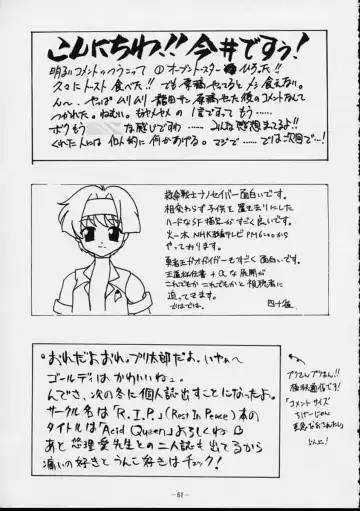 こんにちわ!!今井ですぅ!
明るいコメントのつうこって①オーブントースターひろった!!
久々にトースト食べた!!でも原稿やってるとメシ食えない。
ん〜、やっぱムリムリ 原稿やった後のコメントなんて
つかれた。ねむい。もぉヤメの1言ですって もう……
ボクもう な感じですわ……みんな感想まってるよ!!
くれた人には 何かあげる。マジで……ではは次回で…!
救急戦士ナノセイバー面白いです。
相変わらず子供を置き去りにした
ハードなSF描写がすごく良いです。
火〜木 NHK教育テレビPM6:00から
やってわります。
勇者王ガオガイガーもすごく面白いです。
王道秘伝書+αな展開が
これでもかこれでもかと視聴者に
迫ってきます。
ではでは。
おれだよおれ。プリ太郎だよ。いやぁ〜
ゴールディはかわいいねぇ
んでさ、次の冬に個人誌出すことになったよ。
サークル名は「R.I.P.」(Rest In Peace)本の
タイトルは「Acid Queen」よろしくねっ
あと 悠理愛先生との二人誌も出てるから
痛いの好きとうんこ好きはチェック!
「コメントサイズ
-61-